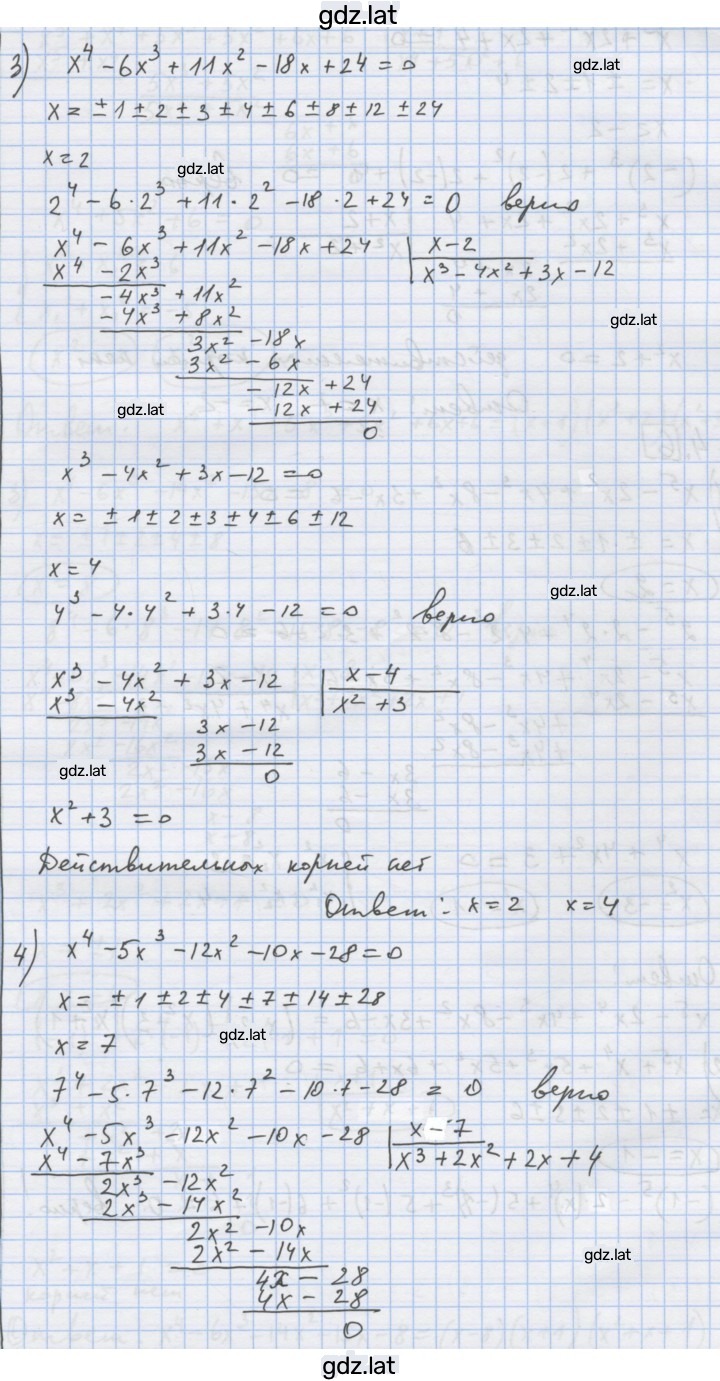 gdz.lat
3) x⁴ - 6x³ + 11x² - 18x + 24 = 0 gdz.lat
x = ± 1 ± 2 ± 3 ± 4 ± 6 ± 8 ± 12 ± 24
x = 2 gdz.lat
2⁴ - 6 · 2³ + 11 · 2² - 18 · 2 + 24 = 0 верно
x⁴ - 6x³ + 11x² - 18x + 24 | x - 2
x⁴ - 2x³ | x³ - 4x² + 3x - 12
- 4x³ + 11x²
- 4x³ + 8x² gdz.lat
3x² - 18x
3x² - 6x
- 12x + 24
gdz.lat - 12x + 24
0
x³ - 4x² + 3x - 12 = 0
x = ± 1 ± 2 ± 3 ± 4 ± 6 ± 12
x = 4 gdz.lat
4³ - 4 · 4² + 3 · 4 - 12 = 0 верно
x³ - 4x² + 3x - 12 | x - 4
x³ - 4x² | x² + 3
3x - 12
3x - 12
gdz.lat 0
x² + 3 = 0
Действительных корней нет
Ответ: x = 2 x = 4
4) x⁴ - 5x³ - 12x² - 10x - 28 = 0
x = ± 1 ± 2 ± 4 ± 7 ± 14 ± 28
x = 7 gdz.lat
7⁴ - 5 · 7³ - 12 · 7² - 10 · 7 - 28 = 0 верно
x⁴ - 5x³ - 12x² - 10x - 28 | x - 7
x⁴ - 7x³ | x³ + 2x² + 2x + 4
2x³ - 12x²
2x³ - 14x²
2x² - 10x
2x² - 14x gdz.lat
4x - 28
4x - 28
0
gdz.lat